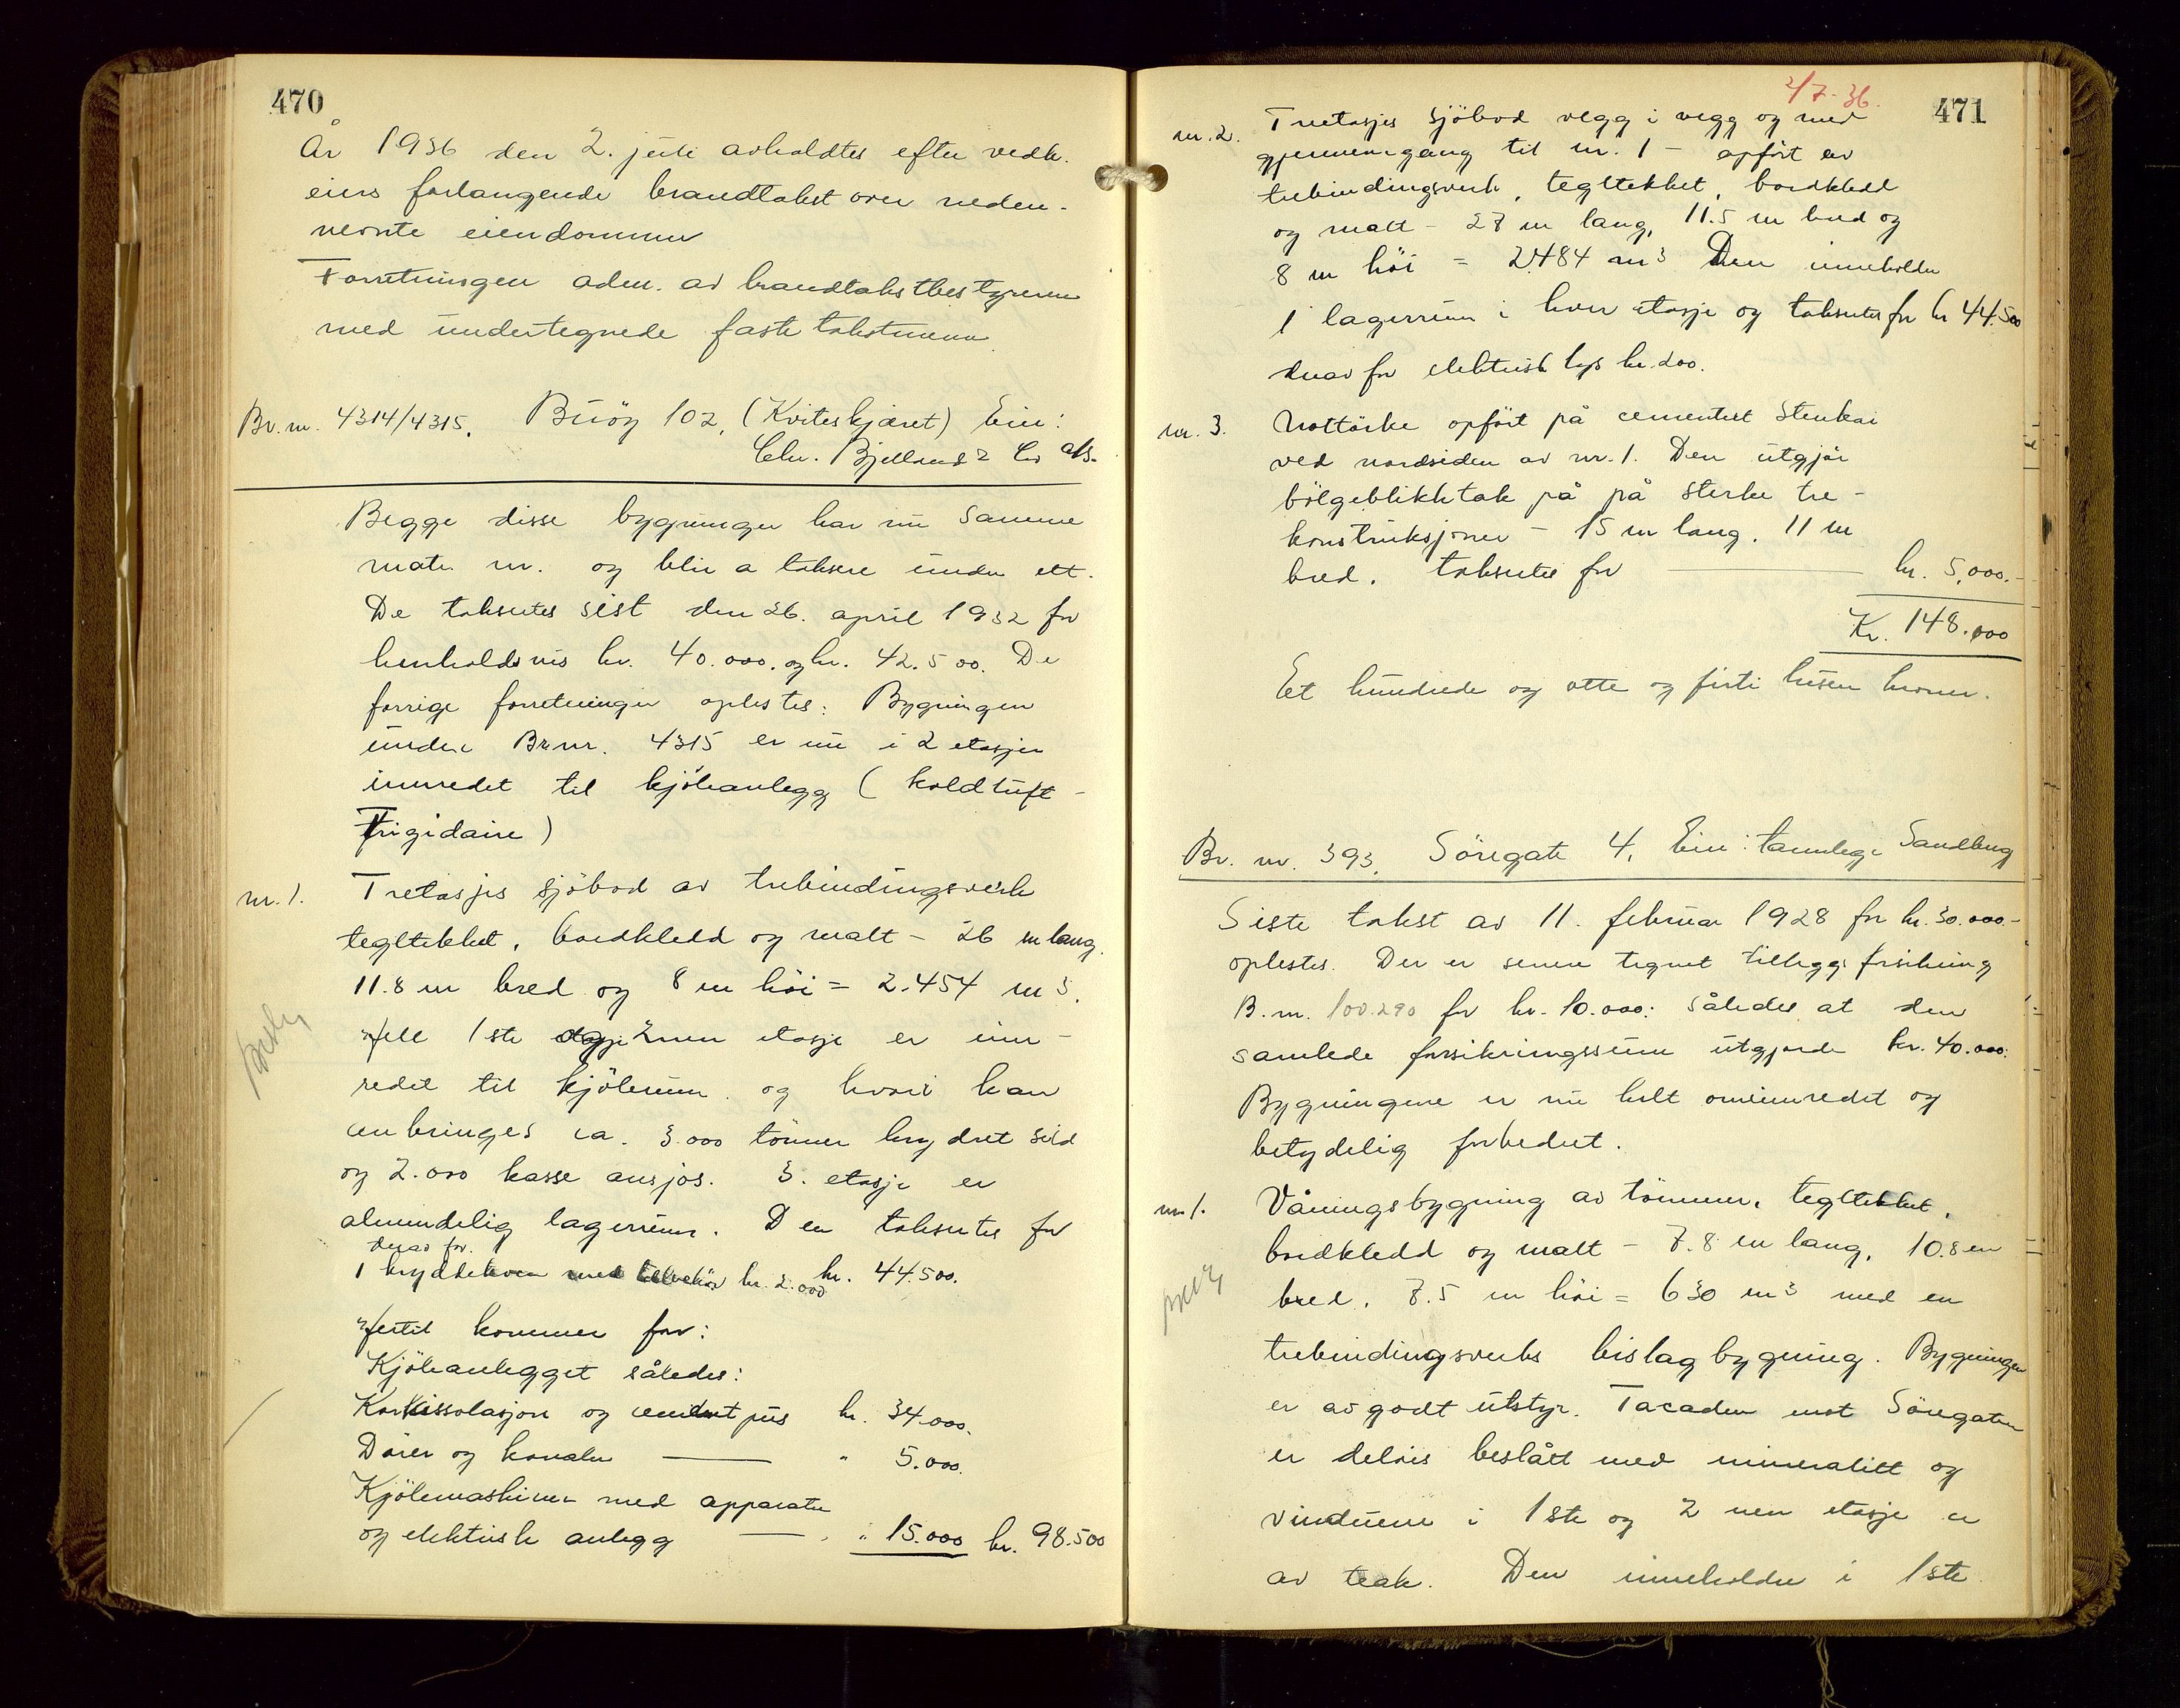 470
År 1936 den 2. juli avholdtes efter vedk.
eiers forlangende brandtakst over neden-
nevnte eiendommer
Forretningen adm. av brandtakstbestyreren
med undertegnede faste takstmenn.
Br. nr. 4314/4315. Buöy 102, (Kviteskjæret) Eier:
Chr. Bjelland & Co A/S.
Begge disse bygninger har nu samme
matr. nr. og blir a taksere under ett.
De taksertes sist den 26. april 1932 for
henholdsvis kr. 40.000. og kr. 42.500. De
forrige forretninger oplestes: Bygningen
under Br. nr. 4315 er nu i 2 etasjer
innredet til kjöleanlegg (koldluft-
Frigidaire)
nr. 1. Tretasjes sjöbod av trebindingsverk
tegltekket, bordkledd og malt - 26 m lang,
11.8 m bred og 8 m höi = 2.454 m3.
Hele 1ste etasje 2nen etasje er inn-
redet til kjölerum og hvori kan
anbringes ca. 3.000 tönner krydret sild
og 2.000 kasse ansjos. 3. etasje er
almindelig lagerrum. Den takseres for
derav for
1 med tilbehör kr. 2.000 kr. 44.500.
Hertil kommer for:
Kjöleanlegget således:
Korkissolasjon og cementpus kr. 34.000.
Dörer og kanaler — " 5.000.
Kjölemaskiner med apparater
og elektrisk anlegg — " 15.000 kr. 98.500
2/7-36.
471
nr. 2. Tretasjes sjöbod vegg i vegg og med
gjennemgang til nr. 1 - opfört av
trebindingsverk, tegltekket, bordkledd
og malt - 27 m lang, 11.5 m bred og
8 m höi = 2484 m3 Den inneholder
1 lagerrum i hver etasje og takseres for kr 44.500
derav for elektrisk lys kr. 200.
nr. 3. Nottörke opfört på cementert stenkai
ved nordsiden av nr. 1. Den utgjör
bölgeblikktak på på sterke tre-
konstruksjoner - 15 m lang, 11 m
bred, takseres for — kr. 5.000.-
Kr. 148.000
Et hundrede og otte og firti tusen kroner.
Br. nr. 393. Söregate 4, Eier: tannlege Sandberg
Siste takst av 11. februar 1928 for kr. 30.000.-
oplestes. Der er senere tegnet tilleggsforsikring
B. nr. 100.290 for kr. 10.000: således at den
samlede forsikringssum utgjorde kr. 40.000:
Bygningene er nu helt ominnredet og
betydelig forbedret.
nr. 1. Våningsbygning av tömmer, tegltekket,
bordkledd og malt - 7.8 m lang, 10.8 m
bred, 7.5 m höi = 630 m3 med en
trebindingsverks bislagbygning. Bygningen
er av godt utstyr. Facaden mot Söregaten
er delvis beslått med mineralitt og
vinduene i 1ste og 2nen etasje er
av teak. Den inneholder i 1ste